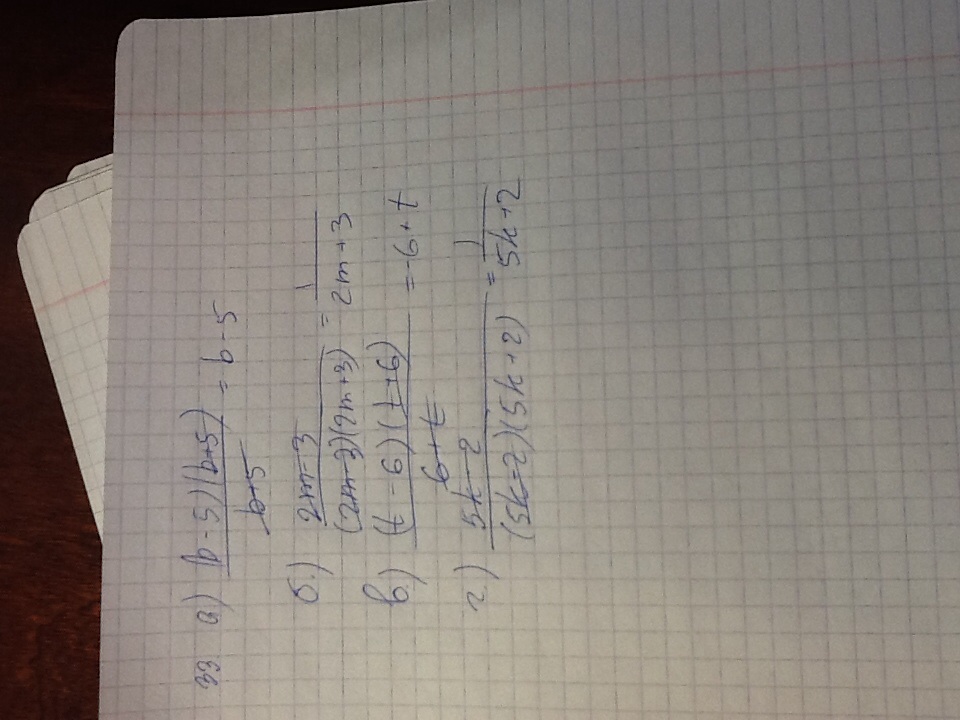 33 а) (b-5)(b+5)/b+5 = b-5
б.) 2m-3/(2m-3)(2m+3) = 1/2m+3
в.) (t-6)(t+6)/6+t = -6+t
г) 5k-2/(5k-2)(5k+2) = 1/5k+2